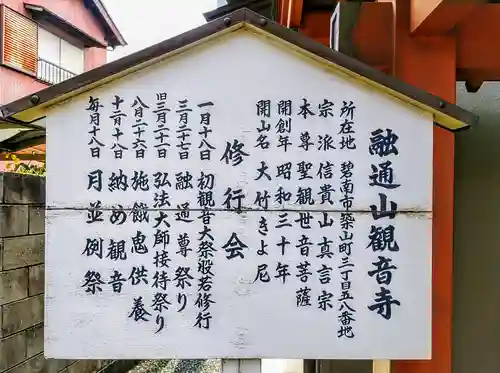 融通山観音寺
所在地　碧南市築山町三丁目五八番地
宗派　信貴山真言宗
本尊　聖観世音菩薩
開創年　昭和三十年
開山名　大竹きよ尼
修行会
一月十八日　初観音大祭般若修行
三月二十七日　融通尊祭り
旧三月二十一日　弘法大師接待祭り
八月二十六日　施餓鬼供養
十二月十八日　納め観音
毎月十八日　月並例祭